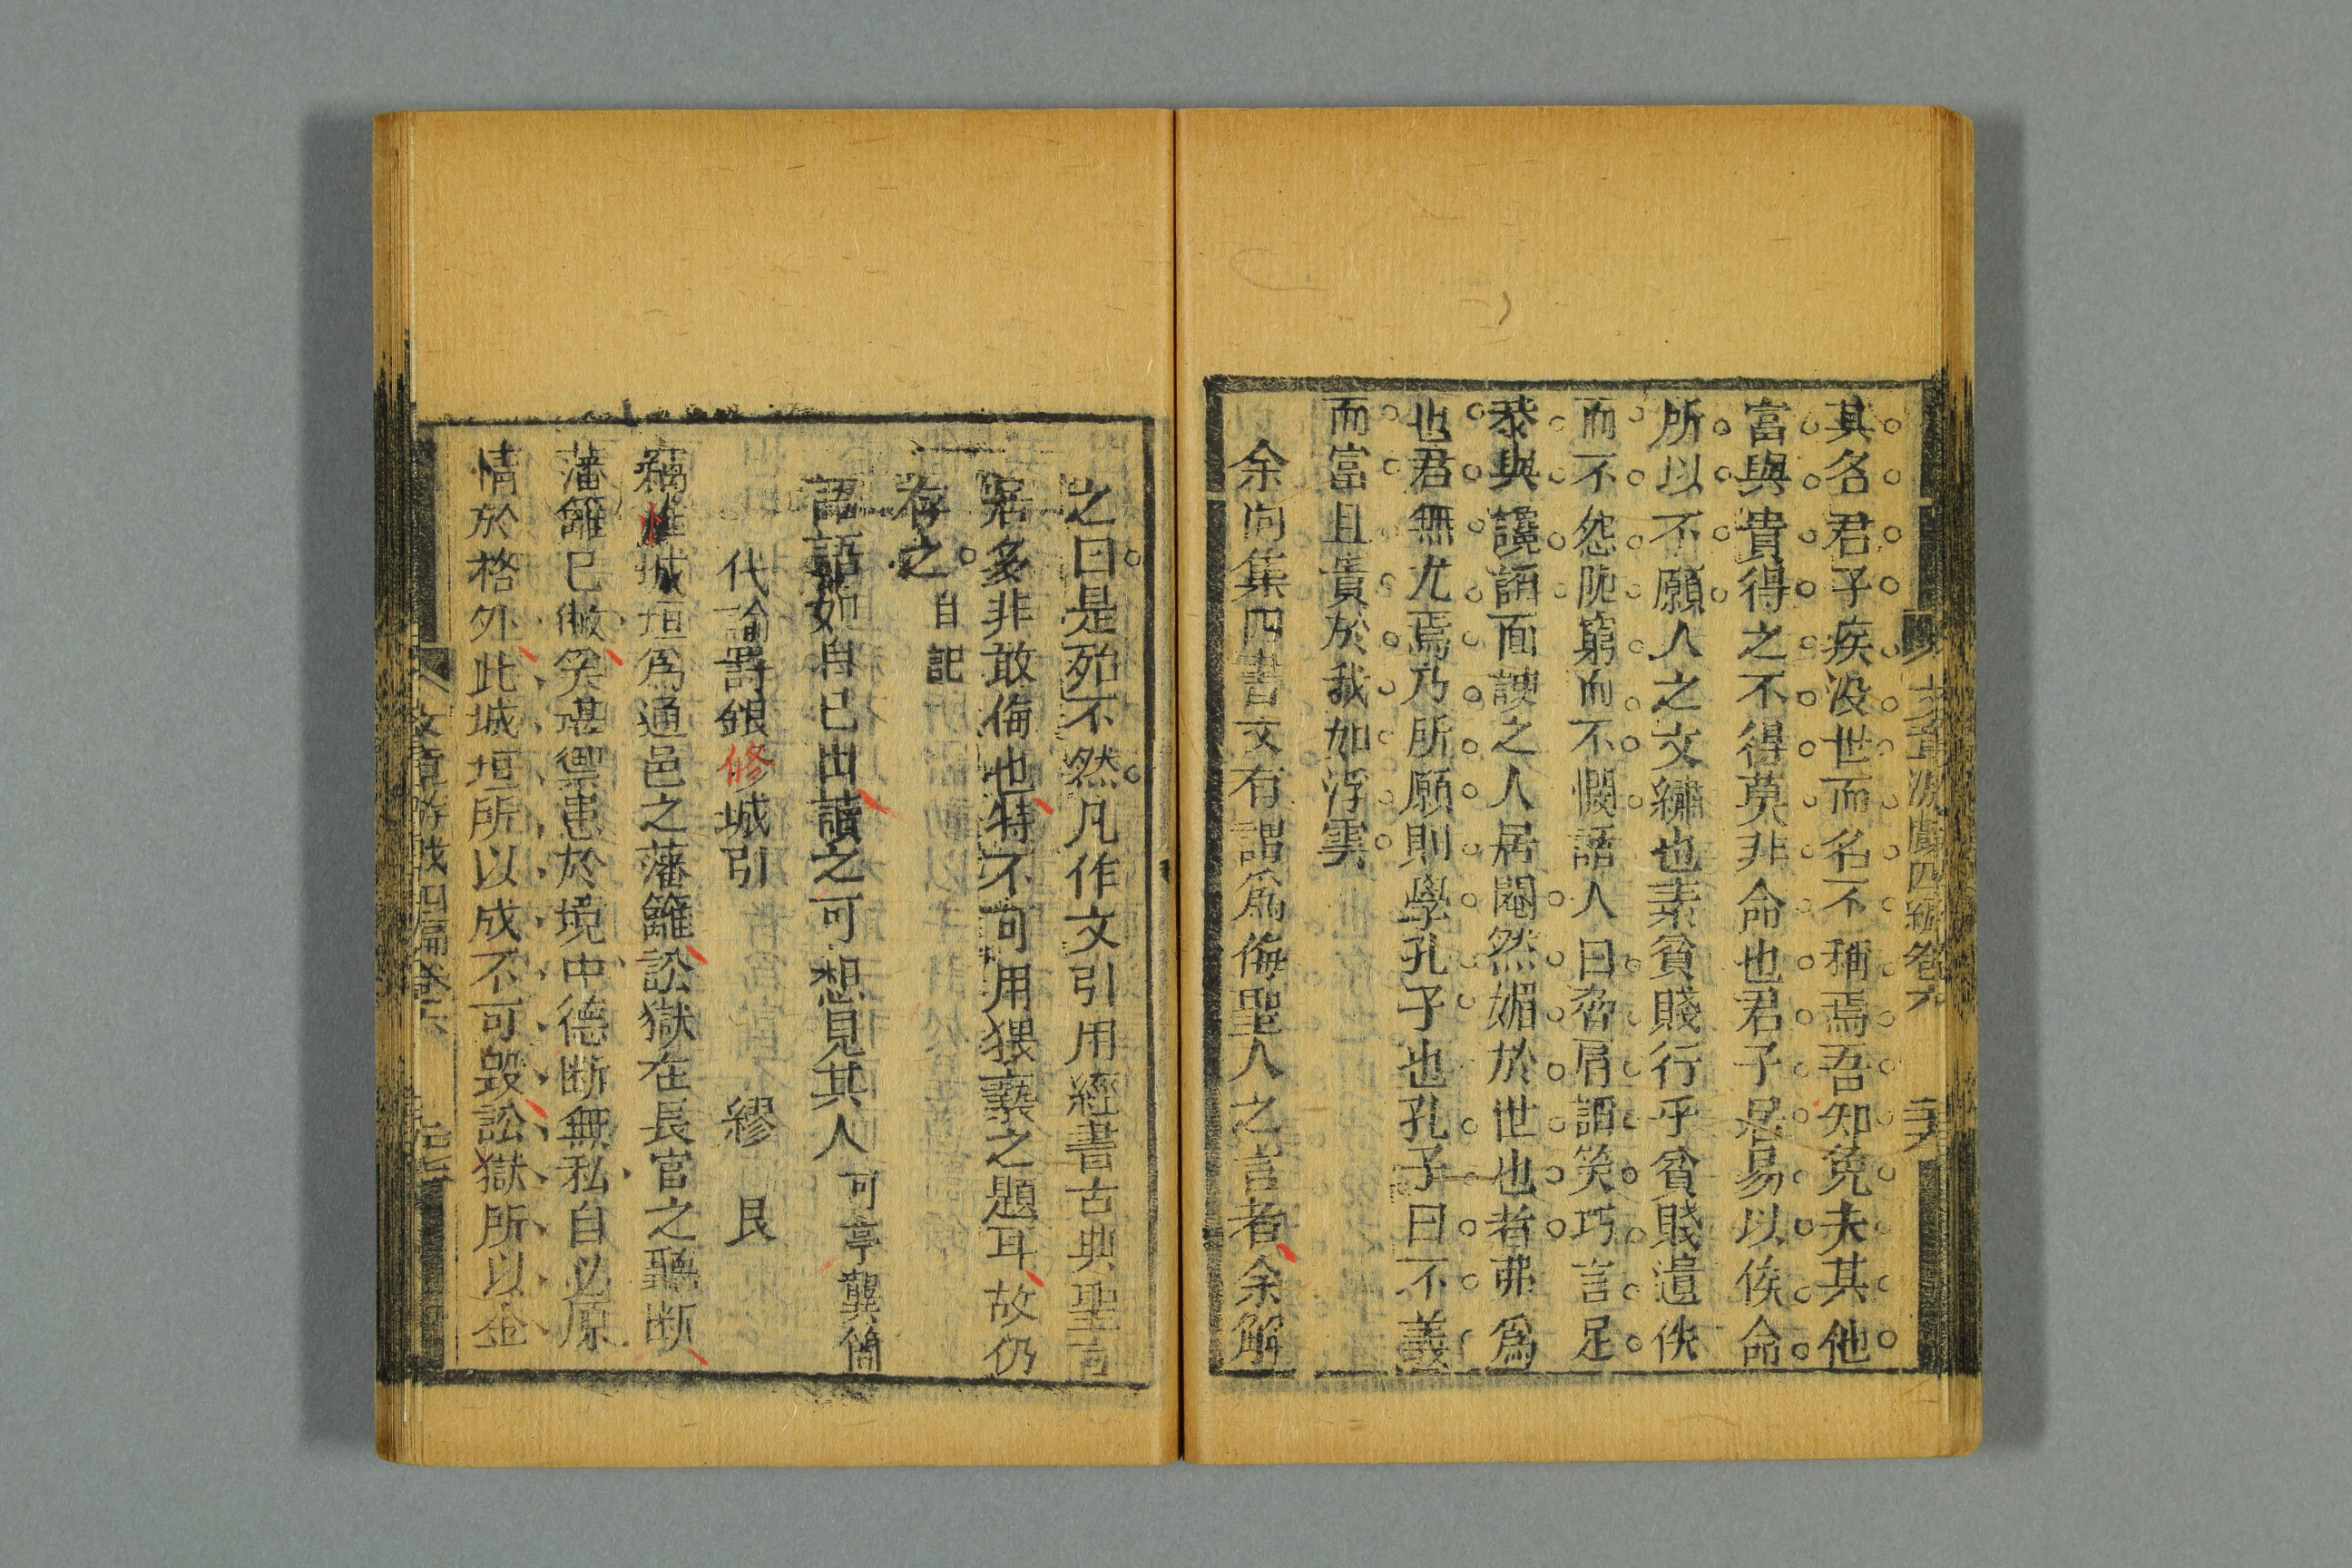 文章游戲四編卷六
其名君子疾沒世而名不稱焉吾知免夫其他
富與貴得之不得莫非命也君子居易以俟命
所以不願人之文繡也素貧賤行乎貧賤遺佚
而不怨阨窮而不憫語人曰脅肩謟笑巧言足
恭與讒謟面諛之人居閹然媚於世也者弗爲
也君無尤焉乃所願則學孔子也孔子曰不義
而富且貴於我如浮雲
余向集四書文有謂爲侮聖人之言者余解
之曰是殆不然凡作文引用經書古典聖言
居多非敢侮也特不可用猥褻之題耳故仍
存之 自記
語語如自己出讀之可想見其人 可亭龔簡
代諭罰銀修城引 繆艮
竊惟城垣爲通邑之藩籬訟獄在長官之聽斷
藩籬已敝矣堪禦患於境中德斷無私自必原
情於格外此城垣所以成不可毀訟獄所以金
文章游戲四編卷六